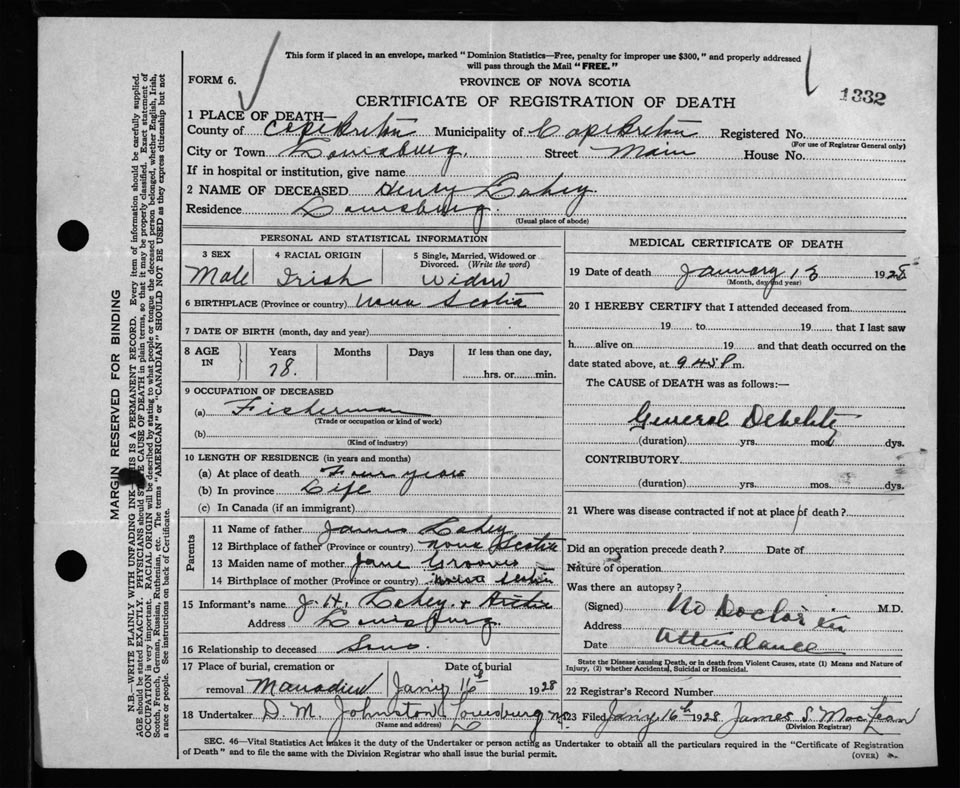 This form if placed in an envelope, marked "Dominion Statistics—Free, penalty for improper use $300," and properly addressed
will pass through the Mail "FREE."
FORM 6.
PROVINCE OF NOVA SCOTIA
1332
CERTIFICATE OF REGISTRATION OF DEATH
1 PLACE OF DEATH—
County of Cape Breton Municipality of Cape Breton Registered No.
(For use of Registrar General only)
City or Town Louisburg. Street Main House No.
If in hospital or institution, give name
2 NAME OF DECEASED Henry Lahey.
Residence Louisburg.
(Usual place of abode)
PERSONAL AND STATISTICAL INFORMATION
3 SEX 4 RACIAL ORIGIN 5 Single, Married, Widowed or Divorced. (Write the word)
Male Irish Widow
6 BIRTHPLACE (Province or country) Nova Scotia
7 DATE OF BIRTH (month, day and year)
8 AGE IN Years Months Days If less than one day,
78. hrs. or min.
9 OCCUPATION OF DECEASED
(a) Fisherman
(Trade or occupation or kind of work)
(b)
(Kind of industry)
10 LENGTH OF RESIDENCE (in years and months)
(a) At place of death Four years
(b) In province Life
(c) In Canada (if an immigrant)
Parents
11 Name of father James Lahey
12 Birthplace of father (Province or country) Nova Scotia
13 Maiden name of mother Jane Grooves
14 Birthplace of mother (Province or country) Nova Scotia
15 Informant's name J. H. Lahey. +
Address Louisburg.
16 Relationship to deceased Sons
17 Place of burial, cremation or Date of burial
removal Manadieu Jany 16th 1928
18 Undertaker D. M. Johnston Louisburg
(Name and address)
MEDICAL CERTIFICATE OF DEATH
19 Date of death January 13 1928
(Month, day and year)
20 I HEREBY CERTIFY that I attended deceased from
19 to 19 that I last saw
h alive on 19 and that death occurred on the
date stated above, at 9 45 P m.
The CAUSE of DEATH was as follows:—
General Debelity
(duration) yrs. mos. dys.
CONTRIBUTORY.
(duration) yrs. mos. dys.
21 Where was disease contracted if not at place of death?
Did an operation precede death? Date of
Nature of operation
Was there an autopsy?
(Signed) No Doctor in M.D.
Address
Date attendance
State the Disease causing Death, or in death from Violent Causes, state (1) Means and Nature of
Injury, (2) whether Accidental, Suicidal or Homicidal.
22 Registrar's Record Number
23 Filed Jany 16th 1928 James S. MacLean
(Division Registrar)
SEC. 46—Vital Statistics Act makes it the duty of the Undertaker or person acting as Undertaker to obtain all the particulars required in the "Certificate of Registration
of Death" and to file the same with the Division Registrar who shall issue the burial permit.
(OVER)
MARGIN RESERVED FOR BINDING
N.B.—WRITE PLAINLY WITH UNFADING INK—THIS IS A PERMANENT RECORD. Every item of information should be carefully supplied.
AGE should be stated EXACTLY. PHYSICIANS should STATE CAUSE OF DEATH in plain terms, so that it may be properly classified. Exact statement of
OCCUPATION is very important. RACIAL ORIGIN will be described by stating to what people or tongue the deceased person belonged, whether English, Irish,
Scotch, French, German, Russian, Ruthenian, etc. The terms "AMERICAN" or "CANADIAN" SHOULD NOT BE USED as they express citizenship but not
a race or people. See instructions on back of Certificate.